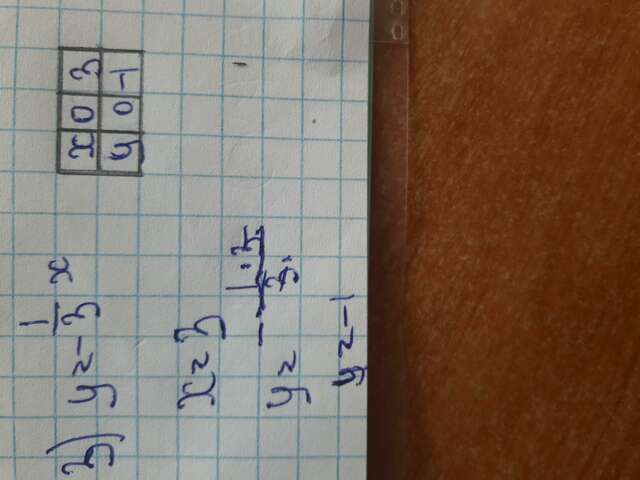 3) y = -1/3 x
x 0 3
y 0 -1
x = 3
y = - 1·3/3
y = -1